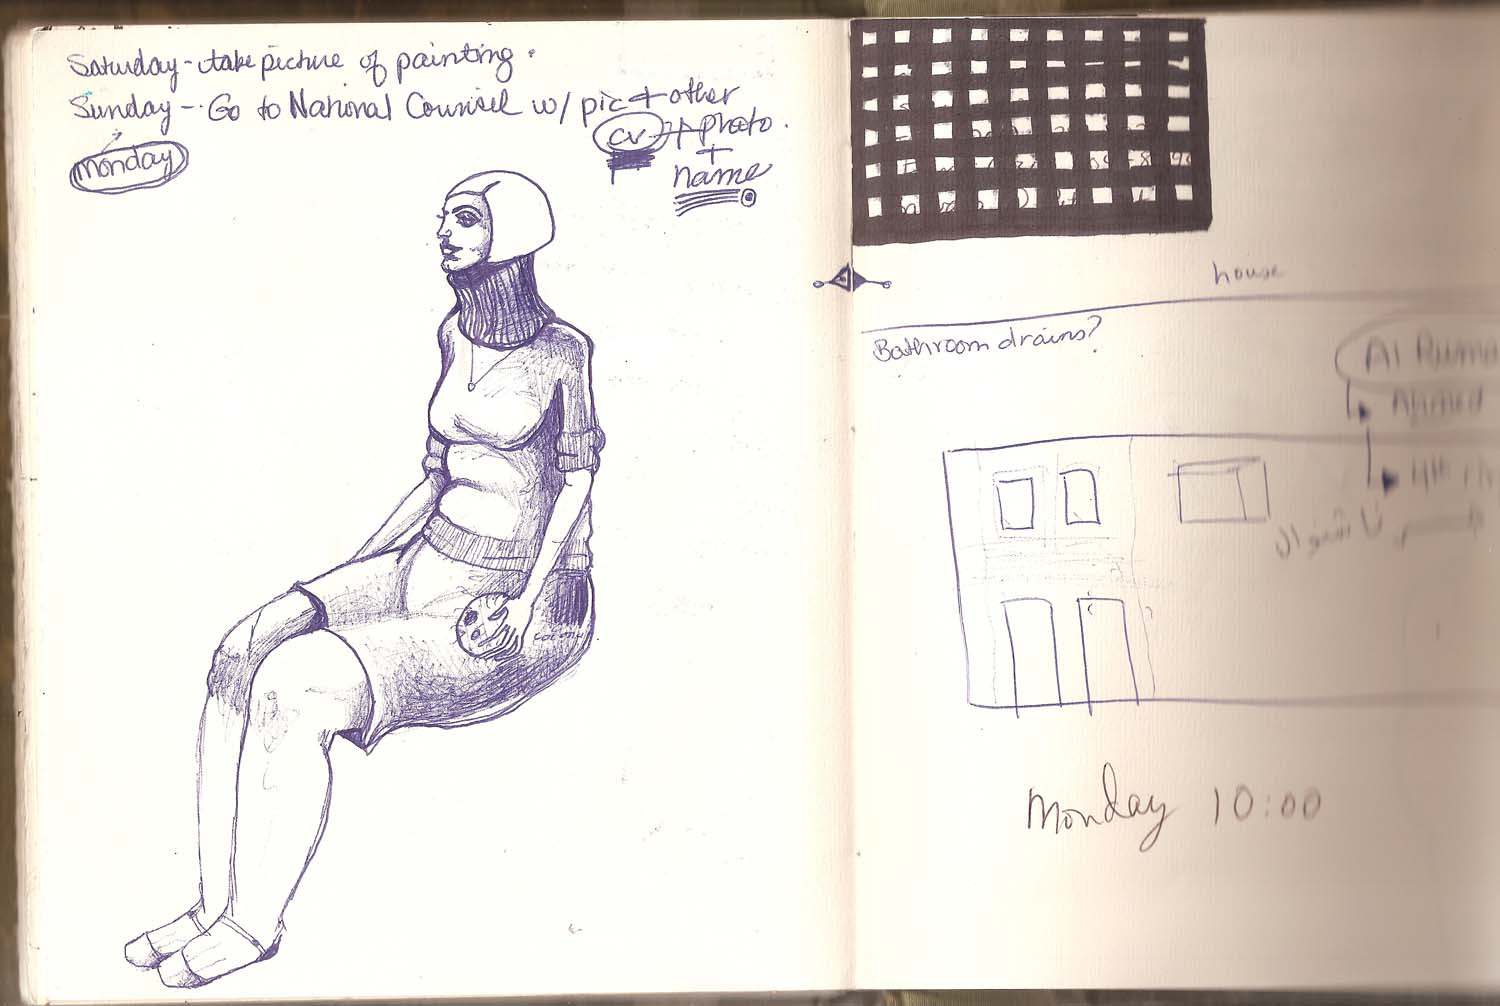 Saturday - take picture of painting.
Sunday - Go to National Counsel w/ pic + other
cv + photo.
Monday
+
name
house
Bathroom drains?
Al Ruma
Ahmed
Monday 10:00